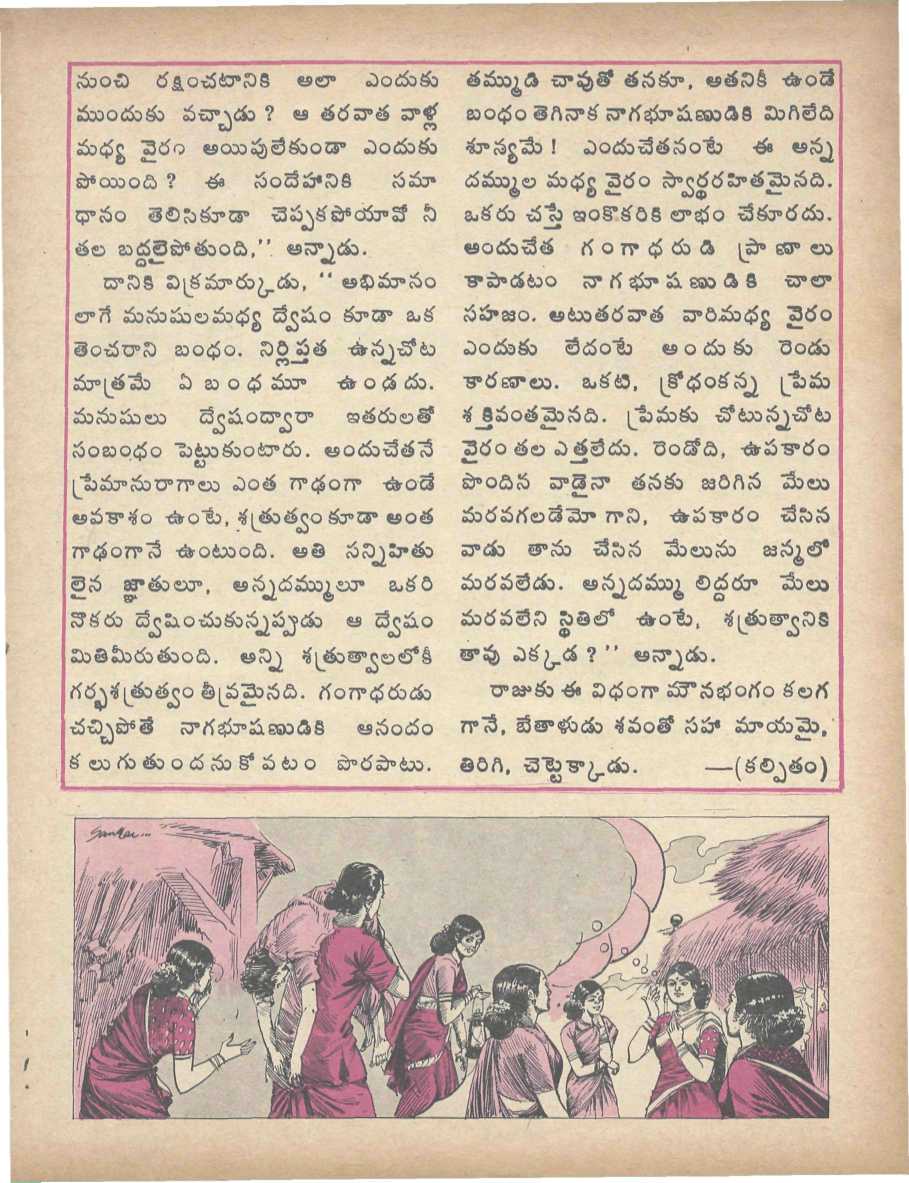 నుంచి రక్షించటానికి అలా ఎందుకు
ముందుకు వచ్చాడు ? ఆ తరవాత వాళ్ల
మధ్య వైరం అయిపులేకుండా ఎందుకు
పోయింది ? ఈ సందేహానికి సమా
ధానం తెలిసికూడా చెప్పకపోయావో నీ
తల బద్దలైపోతుంది,'' అన్నాడు.
దానికి విక్రమార్కుడు, ''అభిమానం
లాగే మనుషులమధ్య ద్వేషం కూడా ఒక
తెంచరాని బంధం. నిర్లిప్తత ఉన్నచోట
మాత్రమే ఏ బంధమూ ఉండదు.
మనుషులు ద్వేషంద్వారా ఇతరులతో
సంబంధం పెట్టుకుంటారు. అందుచేతనే
ప్రేమానురాగాలు ఎంత గాఢంగా ఉండే
అవకాశం ఉంటే, శత్రుత్వంకూడా అంత
గాఢంగానే ఉంటుంది. అతి సన్నిహితు
లైన జ్ఞాతులూ, అన్నదమ్ములూ ఒకరి
నొకరు ద్వేషించుకున్నప్పుడు ఆ ద్వేషం
మితిమీరుతుంది. అన్ని శత్రుత్వాలలోకీ
గర్భశత్రుత్వం తీవ్రమైనది. గంగాధరుడు
చచ్చిపోతే నాగభూషణుడికి ఆనందం
కలుగుతుందనుకోవటం పొరపాటు.
తమ్ముడి చావుతో తనకూ, అతనికీ ఉండే
బంధం తెగినాక నాగభూషణుడికి మిగిలేది
శూన్యమే ! ఎందుచేతనంటే ఈ అన్న
దమ్ముల మధ్య వైరం స్వార్థరహితమైనది.
ఒకరు చస్తే ఇంకొకరికి లాభం చేకూరదు.
అందుచేత గంగాధరుడి ప్రాణాలు
కాపాడటం నాగభూషణుడికి చాలా
సహజం. అటుతరవాత వారిమధ్య వైరం
ఎందుకు లేదంటే అందుకు రెండు
కారణాలు. ఒకటి, క్రోధంకన్న ప్రేమ
శక్తివంతమైనది. ప్రేమకు చోటున్నచోట
వైరం తల ఎత్తలేదు. రెండోది, ఉపకారం
పొందిన వాడైనా తనకు జరిగిన మేలు
మరవగలడేమో గాని, ఉపకారం చేసిన
వాడు తాను చేసిన మేలును జన్మలో
మరవలేడు. అన్నదమ్ము లిద్దరూ మేలు
మరవలేని స్థితిలో ఉంటే, శత్రుత్వానికి
తావు ఎక్కడ ?'' అన్నాడు.
రాజుకు ఈ విధంగా మౌనభంగం కలగ
గానే, బేతాళుడు శవంతో సహా మాయమై,
తిరిగి, చెట్టెక్కాడు. —(కల్పితం)
Sankar...